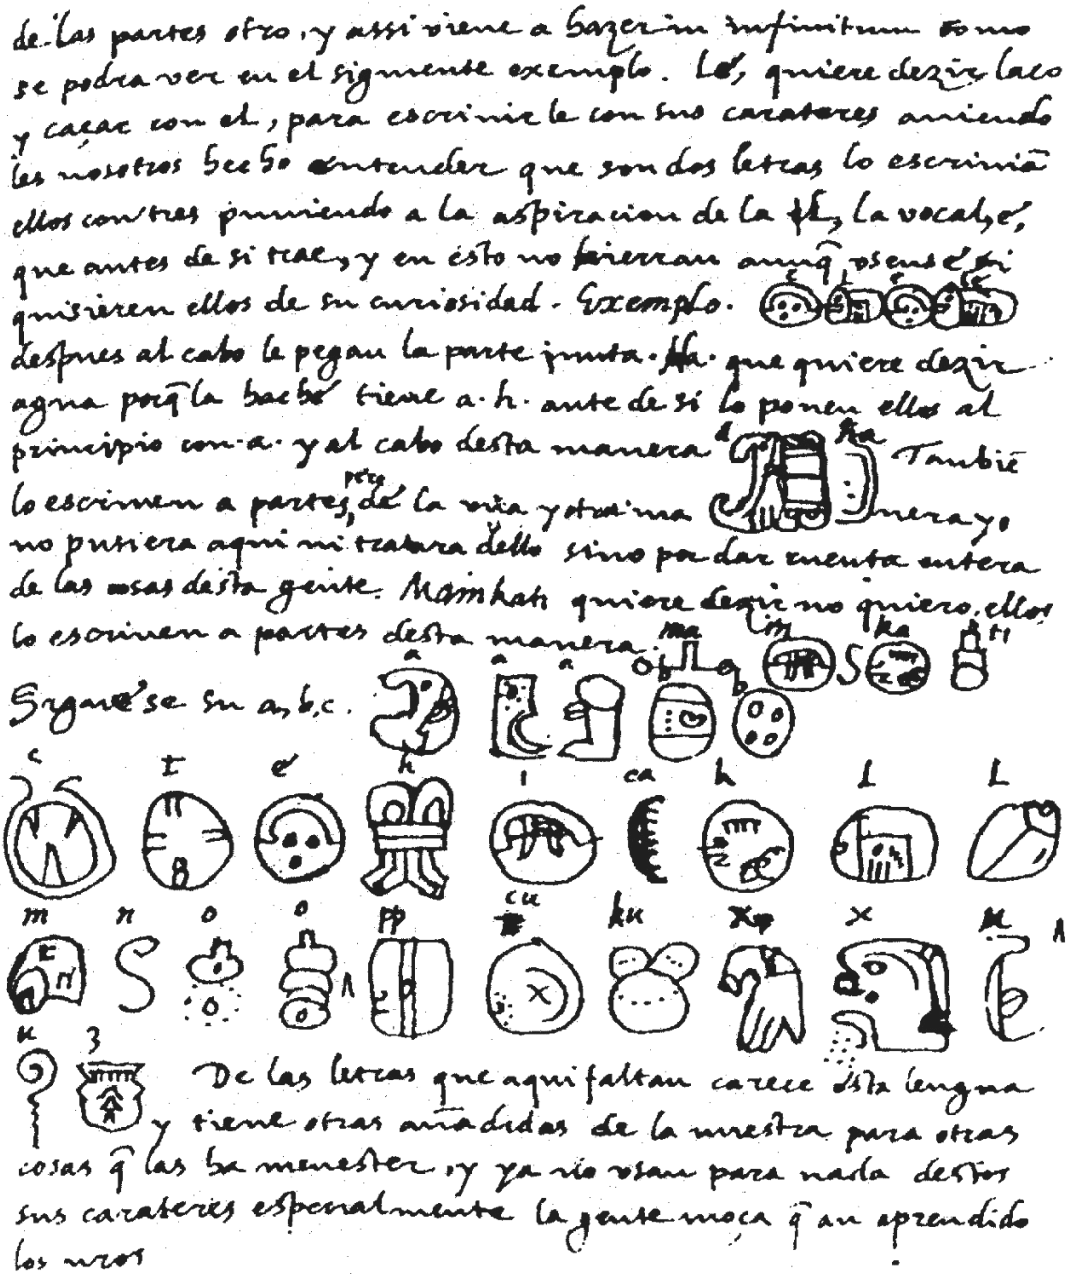 de las partes otro, y assi viene a hazer in infinitum como
se podra ver en el siguiente exemplo. Lé, quiere dezir laço
y caçar con el, para escrivirle con sus carateres aviendo
les nosotros hecho entender que son dos letras lo escriviã
ellos con tres puniendo a la aspiracion de la L, la vocal, é,
que antes de si trae, y en esto no hierran aunq̃ osense si
quisieren ellos de su curiosidad. Exemplo. e L e Lé
despues al cabo le pegan la parte junta. Ha. que quiere dezir
agua porq̃ la haché tiene a. h. ante de si lo ponen ellos al
principio con .a. y al cabo desta manera a ha Tambiẽ
lo escriven a partes, pero de la una y otra ma nera yo
no pusiera aqui ni tratara dello sino por dar cuenta entera
de las cosas desta gente. Mainkati quiere dezir no quiero, ellos
lo escriven a partes desta manera. ma in ka ti
Siguese su a, b, c. a a a b b
c t é h i ca k l l
m n o o pp cu ku x x u
u z De las letras que aqui faltan carece esta lengua
y tiene otras añadidas de la nuestra para otras
cosas q̃ las ha menester, y ya no usan para nada destos
sus carateres especialmente la gente moça q̃ an aprendido
los nros